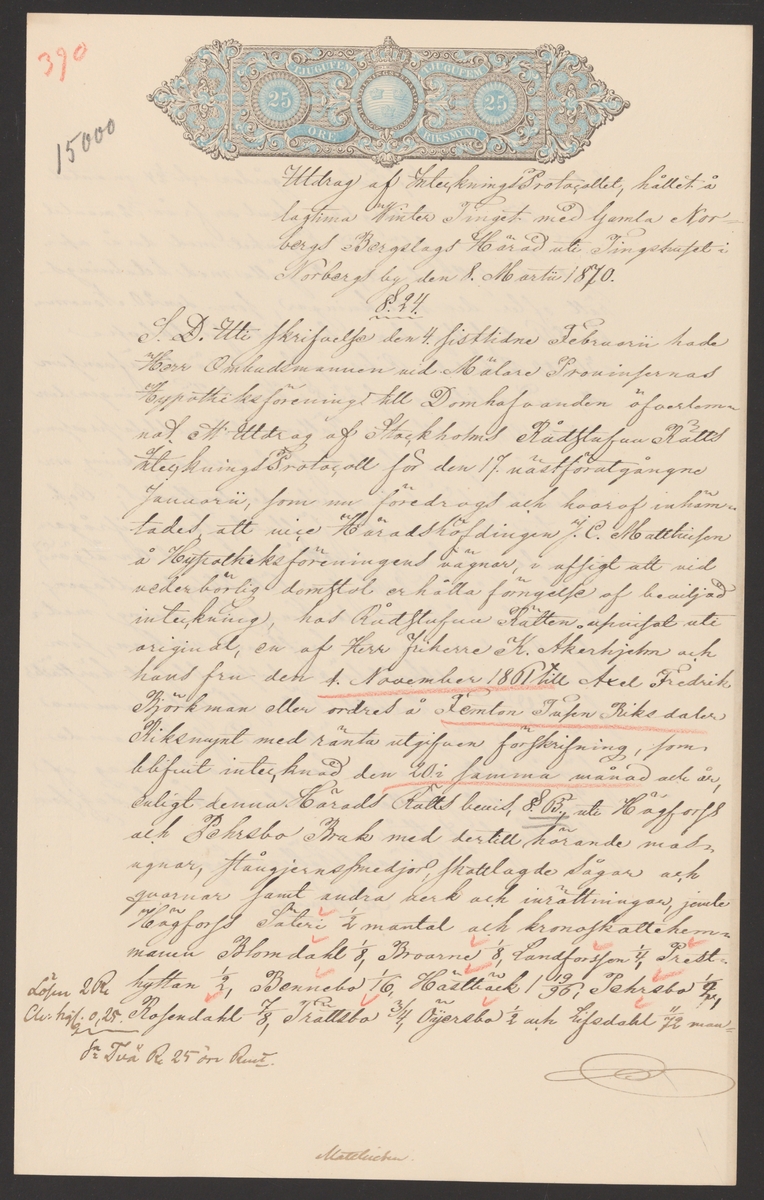 390
15000
TJUGUFEM TJUGUFEM
25 25
ÖRE RIKSMYNT
Utdrag af InteckningsProtocollet, hållet å
lagtima Winter Tinget med Gamla Nor-
bergs Bergslags Härad uti Tingshuset i
Norbergs by den 8. Martii 1870.
§. 24.
S. D. Uti skrifvelse den 4. sistlidne Februarii hade
Herr Ombudsmannen vid Mälare Provinsernas
Hypotheksförening till Domhafvanden öfverlem-
nat Utdrag af Stockholms Rådstufvu Rätts
InteckningsProtocoll för den 17. nästförutgångne
Januarii, som nu föredrogs och hvaraf inhäm-
tades att vice Häradshöfdingen J. C. Matthiesen
å Hypotheksföreningens vägnar, i afsigt att vid
vederbörlig domstol erhålla förnyelse af beviljad
inteckning, hos Rådstufvu Rätten uppvisat uti
original, en af Herr Friherre K. Åkerhjelm och
hans fru den 1. November 1861 till Axel Fredrik
Björkman eller ordres å Femton Tusen Riksdaler
Riksmynt med ränta utgifven förskrifning, som
blifvit intecknad den 20. i samma månad och år,
enligt denna Härads Rätts bevis, §. B., uti Högfors
och Pehrsbo Bruk med dertill hörande mas-
ugnar, stångjernssmedjor, skattlagde sågar och
qvarnar samt andra verk och inrättningar, jemte
Högfors Säteri 1/2 mantal och kronoskattehem-
manen Blomdahl 1/8, Broarne 1/8, Landforssen 1/4, Prest-
hyttan 1/2, Bennebo 1/6, Hästbäck 1 19/96, Pehrsbo
Rosendahl 7/8, Trättsbo 3/4, Öijersbo 1/2 och Lifsdahl 11/72 man-
Lösen 2 Rd
Ch. sigill. 0,25.
Sr Två Rd 25 öre Rmt.
Matthiesen.